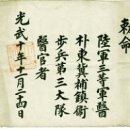 勅命
陸軍三等軍醫
朴東冀補鎭衛
步兵第三大隊
醫官者
光武十年十一月二四日